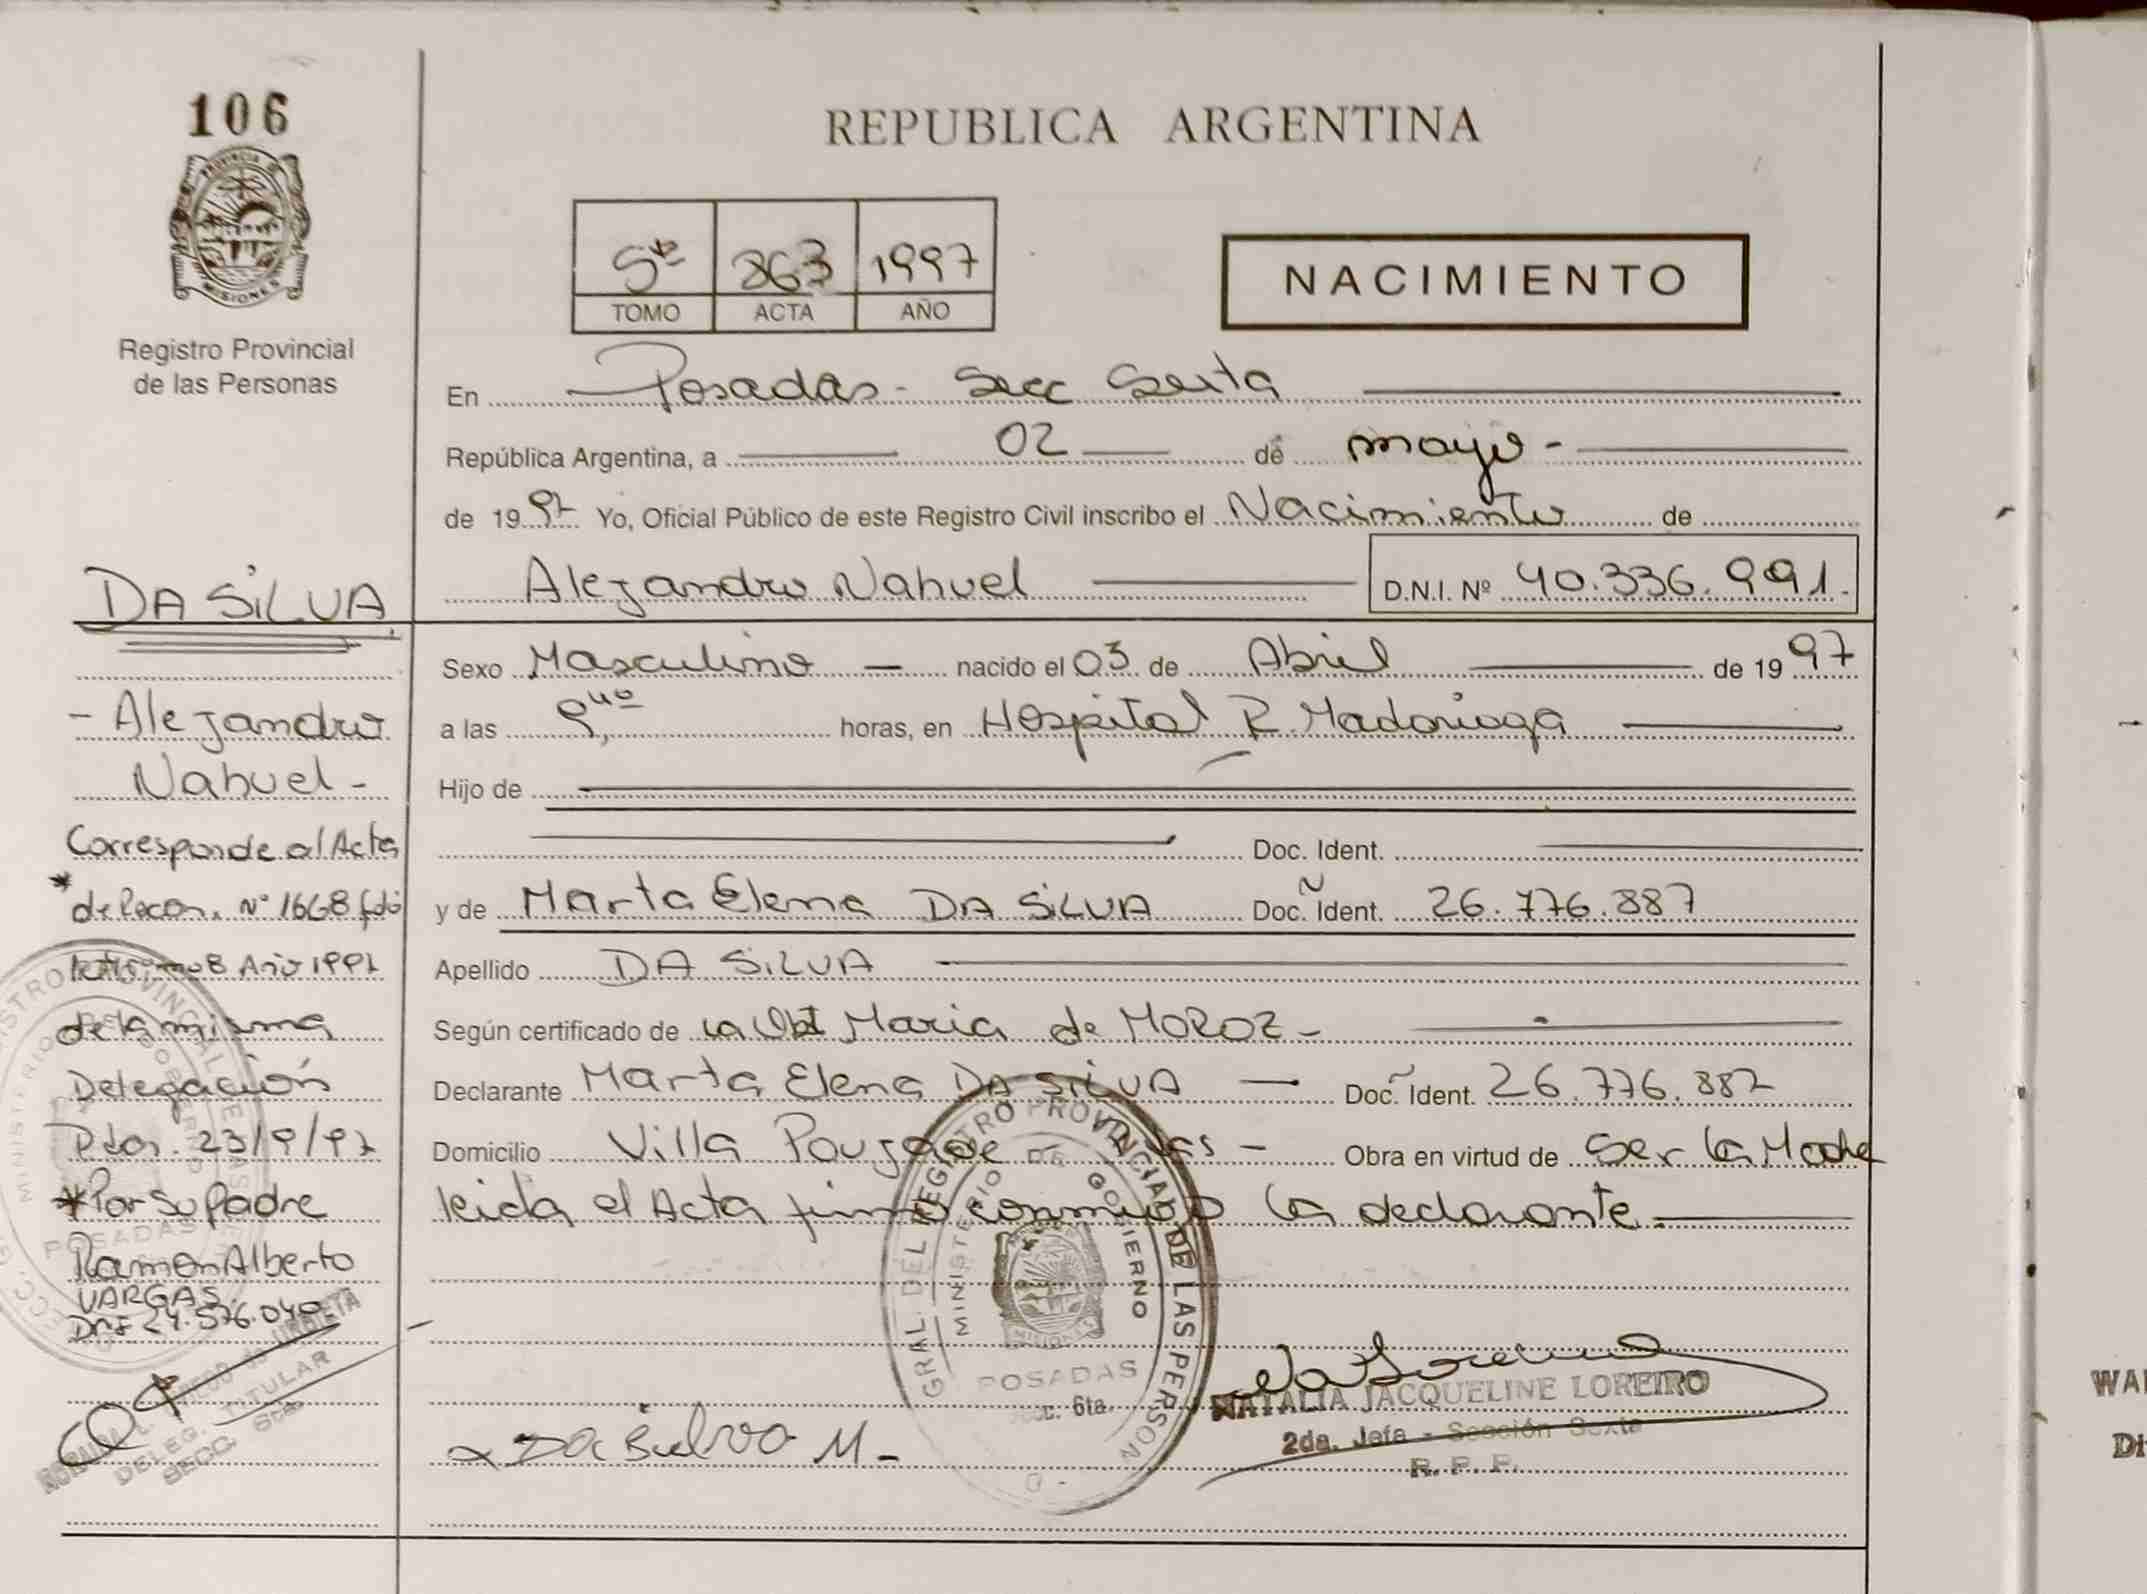 106
PROVINCIA DE
MISIONES
Registro Provincial
de las Personas
DA SILVA
- Alejandro
Nahuel -
Corresponde al Acta
* de Recon. Nº 1668 fdo
Tomo 8 Año 1997
de la misma
Delegación
Pdas. 23/9/97
* Por su Padre
Ramon Alberto
VARGAS
DNI 24.576.040
DELEG. TITULAR
SECC. 6ta
REPUBLICA ARGENTINA
5to 863 1997
TOMO ACTA AÑO
NACIMIENTO
En Posadas - Secc Sexta
República Argentina, a 02 de mayo -
de 1997 Yo, Oficial Público de este Registro Civil inscribo el Nacimiento de
Alejandro Nahuel D.N.I. Nº 40.336.991.-
Sexo Masculino — nacido el 03 de Abril de 1997
a las 9,40 horas, en Hospital R. Madariaga
Hijo de
Doc. Ident.
y de Marta Elena DA SILVA Doc. Ident. 26.776.887
Apellido DA SILVA
Según certificado de la Obst Maria de MOROZ -
Declarante Marta Elena DA SILVA — Doc. Ident. 26.776.887
Domicilio Villa Poujade - Obra en virtud de Ser la Madre
leida el Acta firma conmigo la declarante.
GRAL. DEL REGISTRO PROVINCIAL DE LAS PERSON
MINISTERIO DE GOBIERNO
MISIONES
POSADAS
Secc. 6ta.
x Da Silva M -
NATALIA JACQUELINE LOREIRO
2da. Jefa - Sección Sexta
R. P. P.
WAL
DI